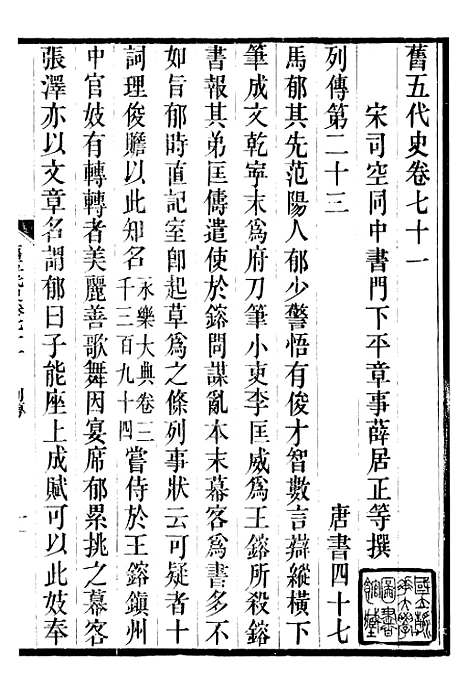 舊五代史卷七十一
宋司空同中書門下平章事薛居正等撰
列傳第二十三　　唐書四十七
馬郁其先范陽人郁少警悟有俊才智數言辯縱橫下
筆成文乾寧末爲府刀筆小吏李匡威爲王鎔所殺鎔
書報其弟匡儔遣使於鎔問謀亂本末幕客爲書多不
如旨郁時直記室卽起草爲之條列事狀云可疑者十
詞理俊贍以此知名永樂大典卷三千三百九十四嘗侍於王鎔鎮州
中官妓有轉轉者美麗善歌舞因宴席郁累挑之幕客
張澤亦以文章名謂郁曰子能座上成賦可以此妓奉